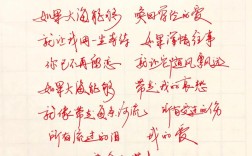 如果大海能够 唤回曾经的爱
就让我用一生等待 如果深情往事
你已不再留恋 就让它随风飘远
如果大海能够 带走我的哀愁
就像带走每条河流 所有受过的伤
所有流过的泪 我的爱